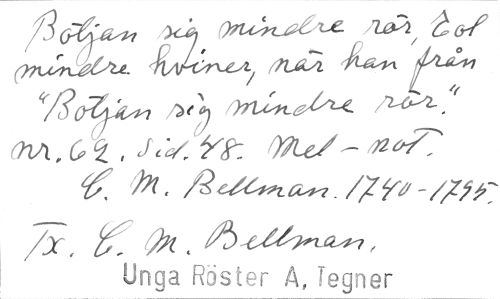 Böljan sig mindre rör, Eol
mindre hviner, när han från
"Böljan sig mindre rör."
nr. 62. Sid. 48. Mel - not.
C. M. Bellman. 1740-1795.
Tx. C. M. Bellman.
Unga Röster A, Tegner